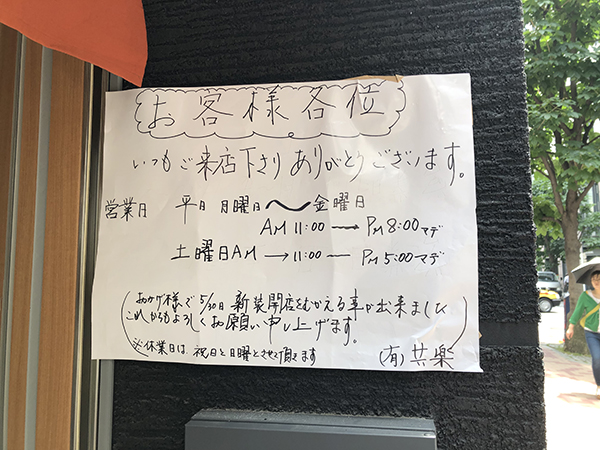 お客様各位
いつもご来店下さり ありがとうございます。
営業日 平日 月曜日〜金曜日
AM 11:00 — PM 8:00マデ
土曜日AM→11:00 — PM 5:00マデ
(おかげ様で 5/30日 新装開店をむかえる事が出来ました
これからもよろしくお願い申し上げます。)
※休業日は、祝日と日曜とさせて頂きます
(有)共楽